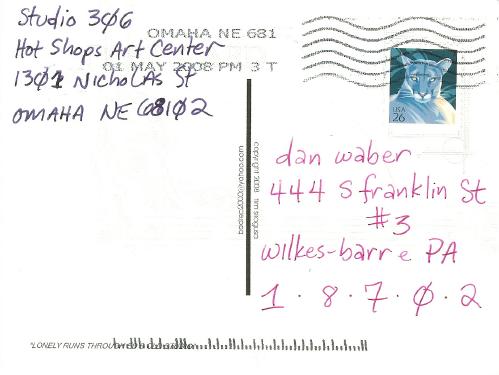 Studio 3Ø6
Hot Shops Art Center
13Ø1 NicholAs St
OMAHA NE 68102
OMAHA NE 681
01 MAY 2008 PM 3 T
USA
26
dan waber
444 S franklin St
#3
wilkes-barre PA
1·8·7·Ø·2
copyright 2008
"LONELY RUNS